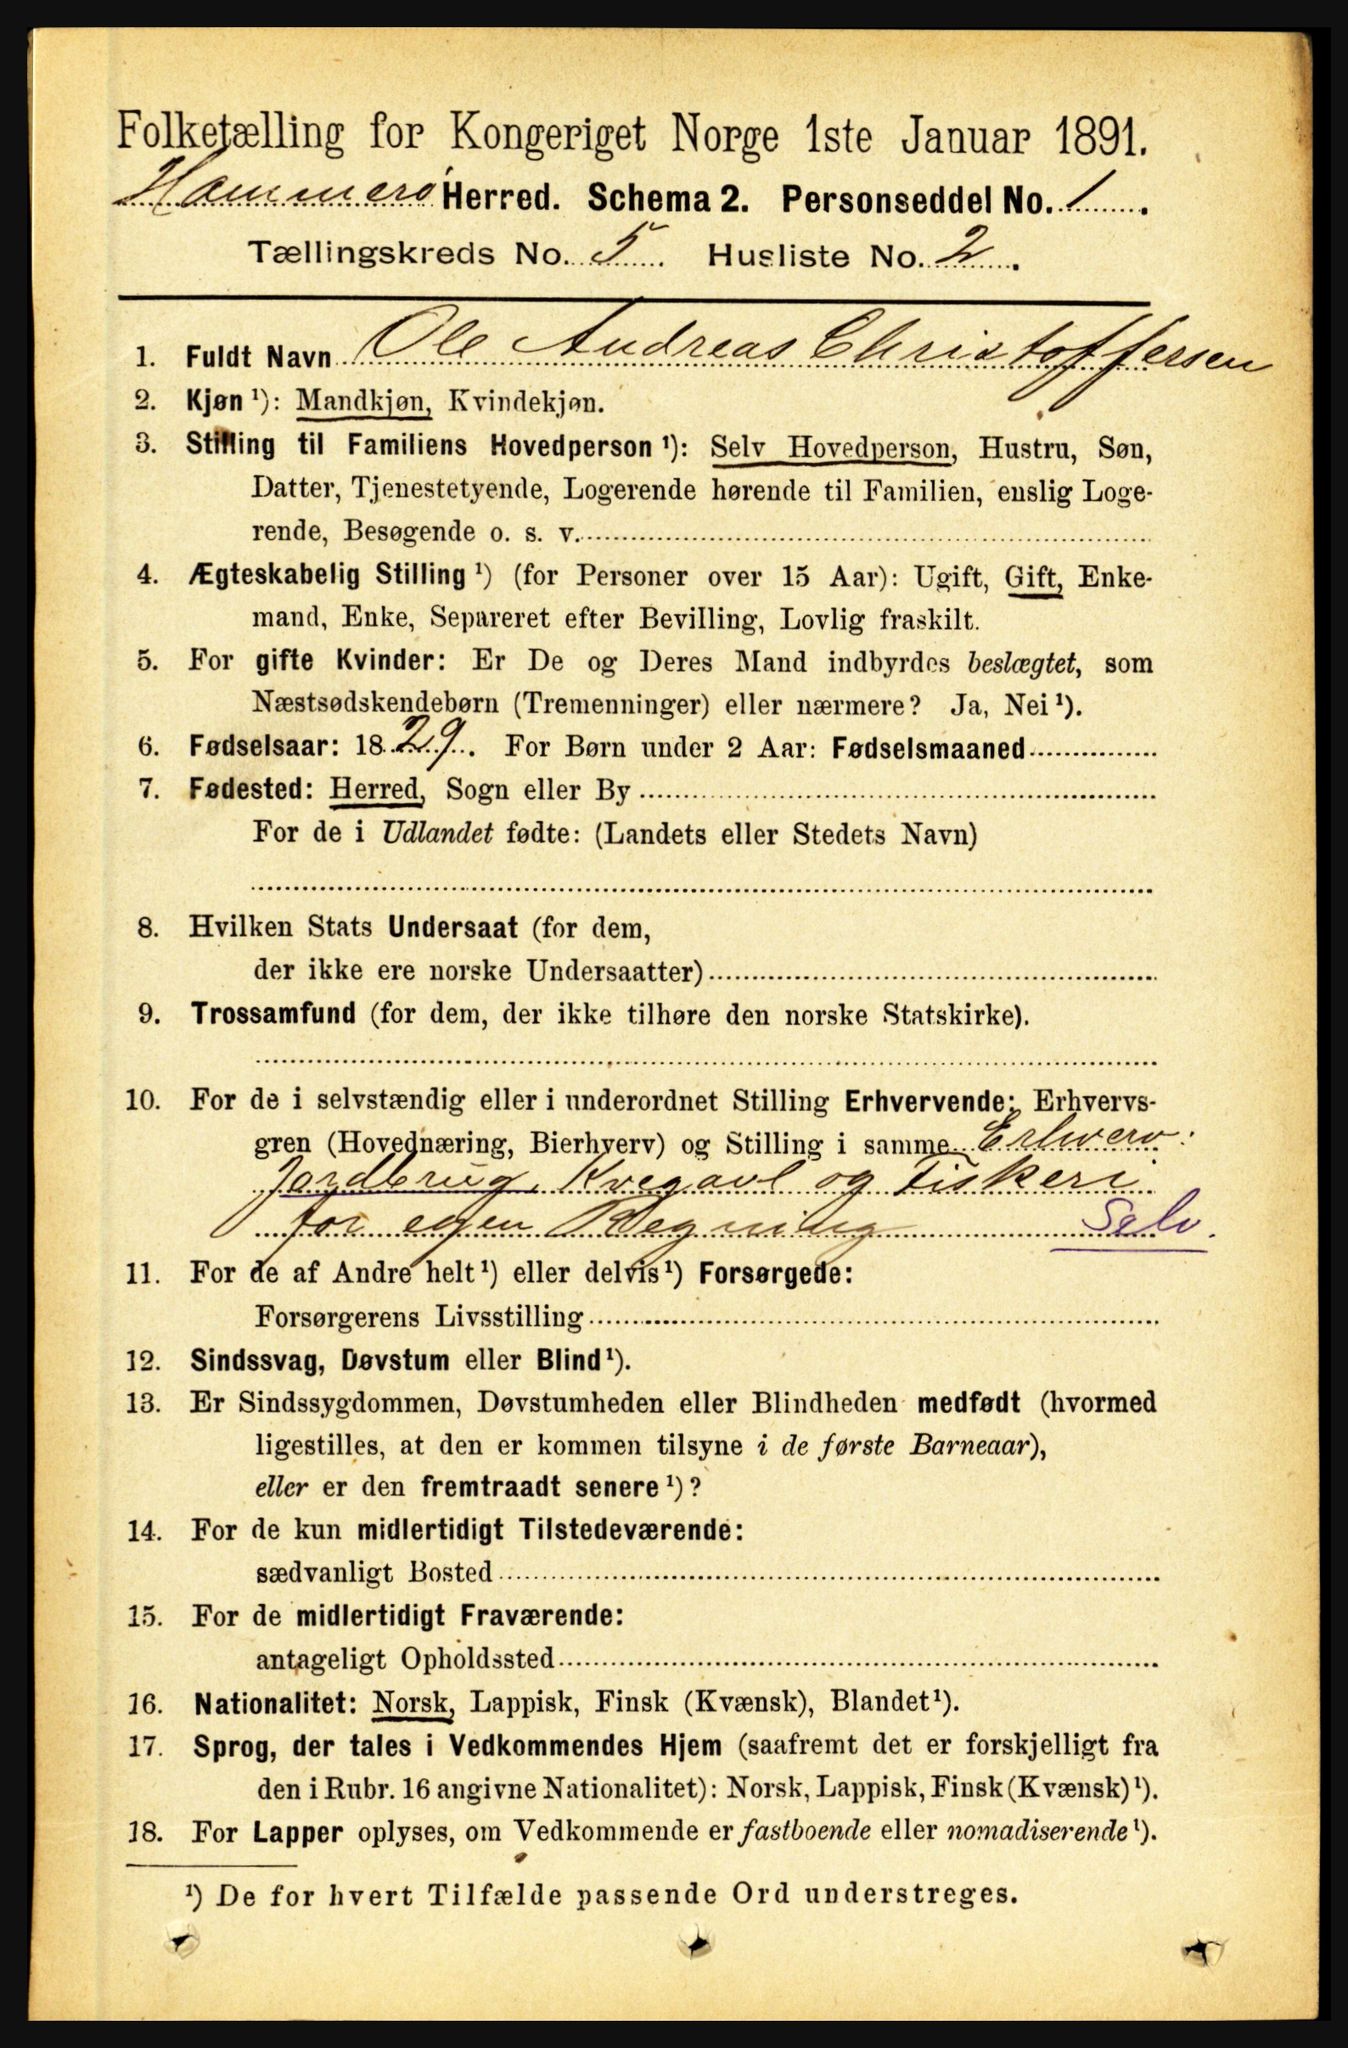 Folketælling for Kongeriget Norge 1ste Januar 1891.
Hammerø Herred. Schema 2. Personseddel No. 1
Tællingskreds No. 5. Husliste No. 2.
1. Fuldt Navn Ole Andreas Christoffersen
2. Kjøn ¹): Mandkjøn, Kvindekjøn.
3. Stilling til Familiens Hovedperson ¹): Selv Hovedperson, Hustru, Søn,
Datter, Tjenestetyende, Logerende hørende til Familien, enslig Loge-
rende, Besøgende o. s. v.
4. Ægteskabelig Stilling ¹) (for Personer over 15 Aar): Ugift, Gift, Enke-
mand, Enke, Separeret efter Bevilling, Lovlig fraskilt.
5. For gifte Kvinder: Er De og Deres Mand indbyrdes beslægtet, som
Næstsødskendebørn (Tremenninger) eller nærmere? Ja, Nei ¹).
6. Fødselsaar: 1829. For Børn under 2 Aar: Fødselsmaaned
7. Fødested: Herred, Sogn eller By
For de i Udlandet fødte: (Landets eller Stedets Navn)
8. Hvilken Stats Undersaat (for dem,
der ikke ere norske Undersaatter)
9. Trossamfund (for dem, der ikke tilhøre den norske Statskirke).
10. For de i selvstændig eller i underordnet Stilling Erhvervende: Erhvervs-
gren (Hovednæring, Bierhverv) og Stilling i samme Erhverv:
Jordbrug, Kvegavl og Fiskeri
for egen Regning Selv.
11. For de af Andre helt ¹) eller delvis ¹) Forsørgede:
Forsørgerens Livsstilling
12. Sindssvag, Døvstum eller Blind ¹).
13. Er Sindssygdommen, Døvstumheden eller Blindheden medfødt (hvormed
ligestilles, at den er kommen tilsyne i de første Barneaar),
eller er den fremtraadt senere ¹)?
14. For de kun midlertidigt Tilstedeværende:
sædvanligt Bosted
15. For de midlertidigt Fraværende:
antageligt Opholdssted
16. Nationalitet: Norsk, Lappisk, Finsk (Kvænsk), Blandet ¹).
17. Sprog, der tales i Vedkommendes Hjem (saafremt det er forskjelligt fra
den i Rubr. 16 angivne Nationalitet): Norsk, Lappisk, Finsk (Kvænsk) ¹).
18. For Lapper oplyses, om Vedkommende er fastboende eller nomadiserende ¹).
¹) De for hvert Tilfælde passende Ord understreges.